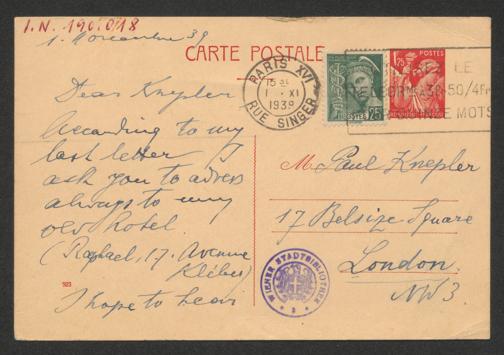 I.N. 190.018
1. Novembre 39
CARTE POSTALE
PARIS XVI
1 - XI
1939
RUE SINGER
POSTES
25
1,25
LE
A 3F.50/4Fr
MOTS
Dear Knepler
According to my
last letter I
ask you to adress
always to my
old hotel
(Raphael, 17. Avenue
Kléber)
I hope to hear
M. Paul Knepler
17 Belsize Square
London
NW3.
WIENER STADTBIBLIOTHEK
923